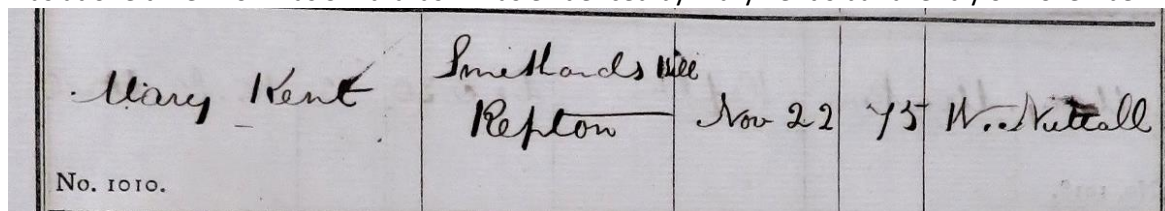 Mary Kent
Smethards Hill
Repton
Nov 22
75
W. Nuttall
No. 1010.